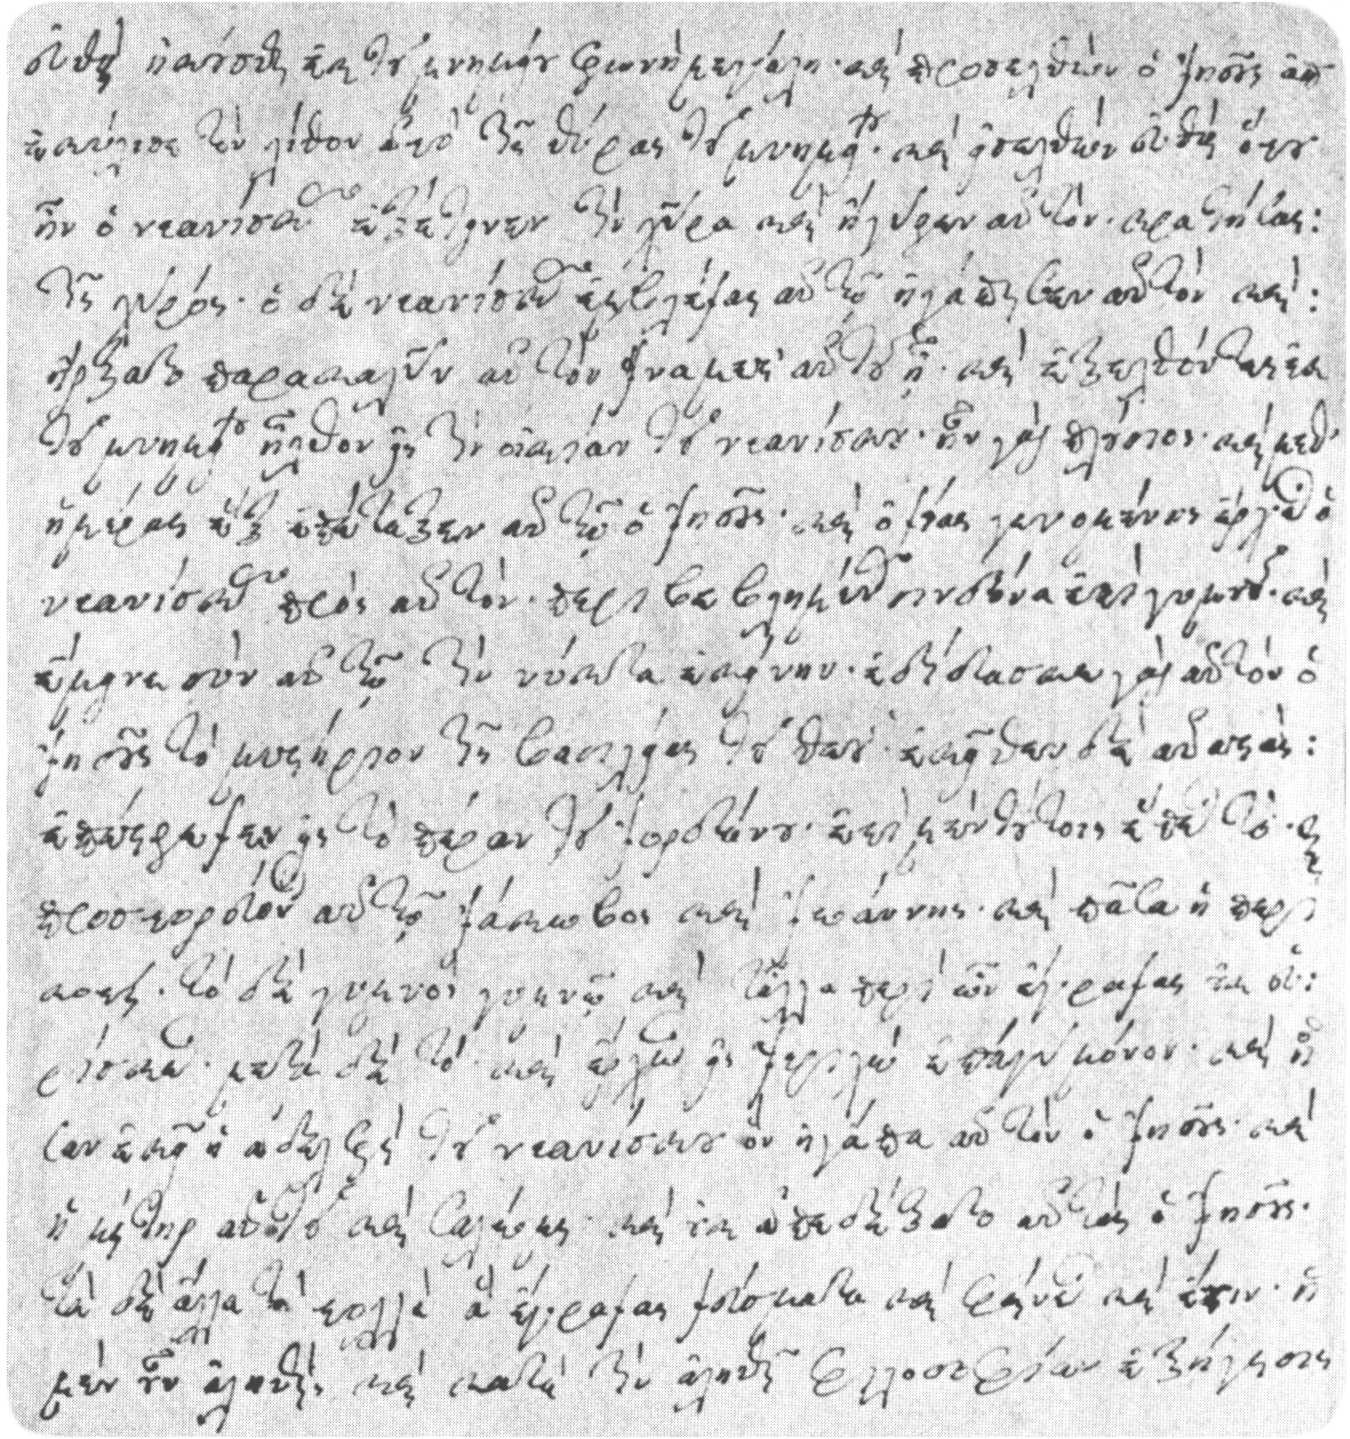 εὐθὺς ἠκούσθη ἐκ τοῦ μνημείου φωνὴ μεγάλη· καὶ προσελθὼν ὁ Ἰησοῦς ἀπ
εκύλισε τὸν λίθον ἀπὸ τῆς θύρας τοῦ μνημείου· καὶ εἰσελθὼν εὐθὺς ὅπου
ἦν ὁ νεανίσκος ἐξέτεινεν τὴν χεῖρα καὶ ἤγειρεν αὐτὸν· κρατήσας:
τῆς χειρός· ὁ δὲ νεανίσκος ἐμβλέψας αὐτῷ ἠγάπησεν αὐτὸν καὶ:
ἤρξατο παρακαλεῖν αὐτὸν ἵνα μετ' αὐτοῦ ᾖ· καὶ ἐξελθόντες ἐκ
τοῦ μνημείου ἦλθον εἰς τὴν οἰκίαν τοῦ νεανίσκου· ἦν γὰρ πλούσιος· καὶ μεθ'
ἡμέρας ἓξ ἐπέταξεν αὐτῷ ὁ Ἰησοῦς· καὶ ὀψίας γενομένης ἔρχεται ὁ
νεανίσκος πρὸς αὐτὸν· περιβεβλημένος σινδόνα ἐπὶ γυμνοῦ· καὶ
ἔμεινε σὺν αὐτῷ τὴν νύκτα ἐκείνην· ἐδίδασκε γὰρ αὐτὸν ὁ
Ἰησοῦς τὸ μυστήριον τῆς βασιλείας τοῦ θεοῦ· ἐκεῖθεν δὲ ἀναστὰς:
ἐπέστρεψεν εἰς τὸ πέραν τοῦ Ἰορδάνου· ἐπὶ μὲν τούτοις ἕπεται τό· καὶ
προσπορεύονται αὐτῷ Ἰάκωβος καὶ Ἰωάννης· καὶ πᾶσα ἡ περι
κοπή· τὸ δὲ γυμνὸς γυμνῷ καὶ τἆλλα περὶ ὧν ἔγραψας οὐχ εὑ:
ρίσκεται· μετὰ δὲ τό· καὶ ἔρχεται εἰς Ἰεριχώ ἐπάγει μόνον· καὶ ἦ
σαν ἐκεῖ ἡ ἀδελφὴ τοῦ νεανίσκου ὃν ἠγάπα αὐτὸν ὁ Ἰησοῦς· καὶ
ἡ μήτηρ αὐτοῦ καὶ Σαλώμη· καὶ οὐκ ἀπεδέξατο αὐτὰς ὁ Ἰησοῦς·
τὰ δὲ ἄλλα τὰ πολλὰ ἃ ἔγραψας ψεύσματα καὶ φαίνεται καὶ ἔστιν· ἡ
μὲν οὖν ἀληθὴς καὶ κατὰ τὴν ἀληθῆ φιλοσοφίαν ἐξήγησις